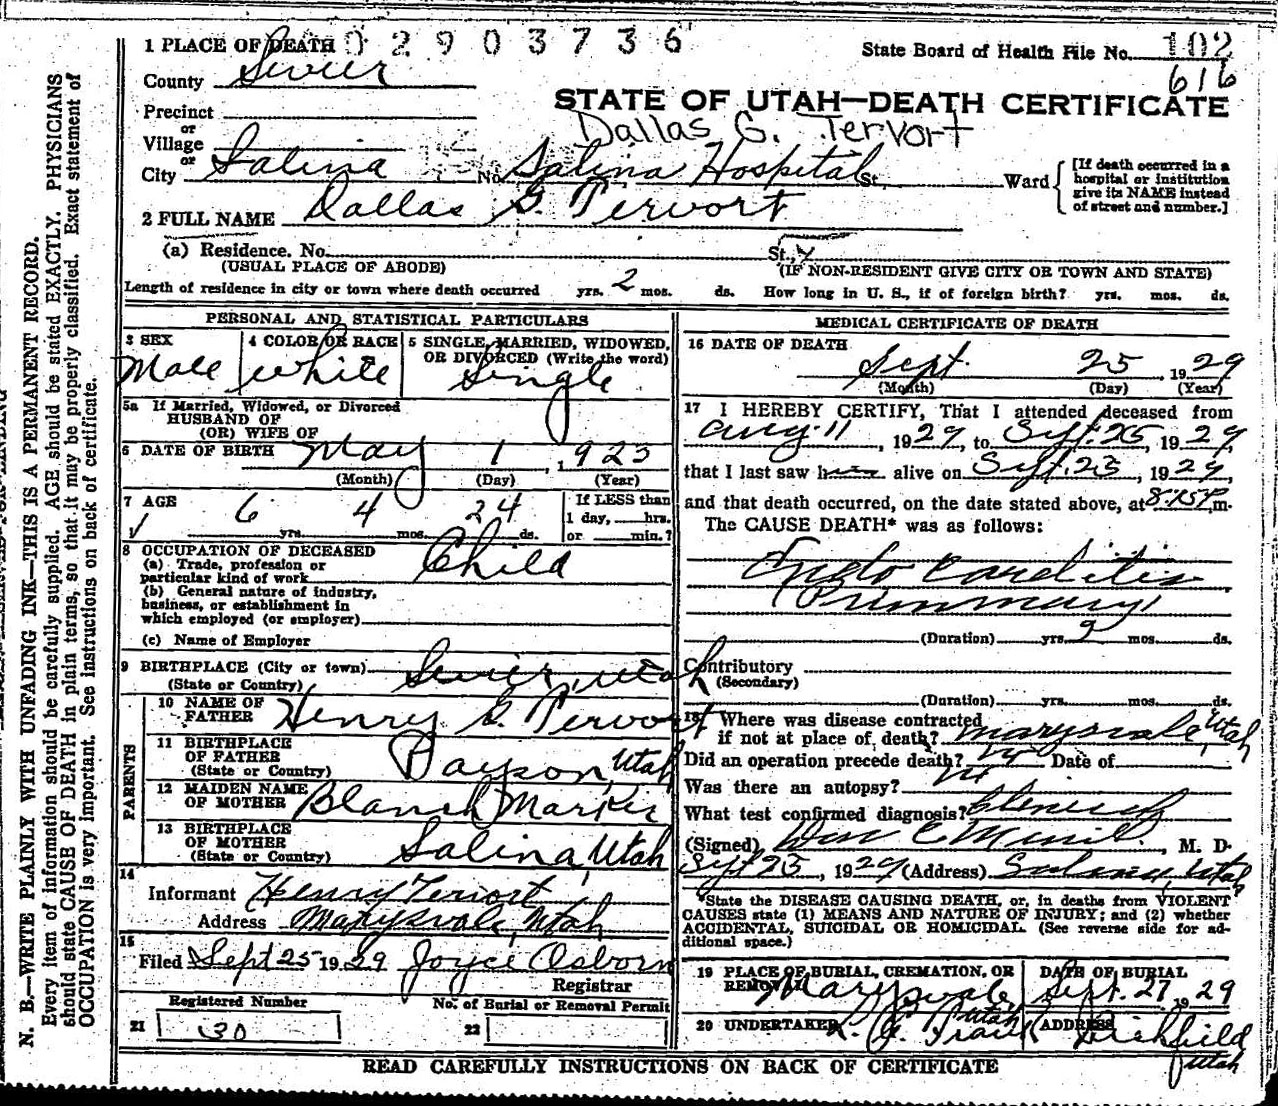 02903736
State Board of Health File No. 102
616
1 PLACE OF DEATH
County Sevier
STATE OF UTAH—DEATH CERTIFICATE
Precinct
or
Village
Dallas G. Tervort
or
City Salina No. Salina Hospital St. Ward
[If death occurred in a
hospital or institution
give its NAME instead
of street and number.]
2 FULL NAME Dallas G. Tervort
(a) Residence. No. St.,
(USUAL PLACE OF ABODE) (IF NON-RESIDENT GIVE CITY OR TOWN AND STATE)
Length of residence in city or town where death occurred yrs. 2 mos. ds. How long in U. S., if of foreign birth? yrs. mos. ds.
PERSONAL AND STATISTICAL PARTICULARS
3 SEX
Male
4 COLOR OR RACE
White
5 SINGLE, MARRIED, WIDOWED,
OR DIVORCED (Write the word)
Single
5a If Married, Widowed, or Divorced
HUSBAND OF
(OR) WIFE OF
6 DATE OF BIRTH May 1, 1923
(Month) (Day) (Year)
7 AGE
6 yrs. 4 mos. 24 ds.
If LESS than
1 day, hrs.
or min.?
8 OCCUPATION OF DECEASED
(a) Trade, profession or
particular kind of work Child
(b) General nature of industry,
business, or establishment in
which employed (or employer)
(c) Name of Employer
9 BIRTHPLACE (City or town) Sevier, Utah
(State or Country)
PARENTS
10 NAME OF
FATHER Henry G. Tervort
11 BIRTHPLACE
OF FATHER
(State or Country) Payson, Utah
12 MAIDEN NAME
OF MOTHER Blanch
13 BIRTHPLACE
OF MOTHER
(State or Country) Salina, Utah
14
Informant Henry Tervort
Address Marysvale, Utah
15
Filed Sept 25 1929 Joyce Osborn
Registrar
Registered Number
21 30
No. of Burial or Removal Permit
22
MEDICAL CERTIFICATE OF DEATH
16 DATE OF DEATH
Sept. 25, 1929
(Month) (Day) (Year)
17 I HEREBY CERTIFY, That I attended deceased from
Aug. 11, 1929, to Sept. 25, 1929,
that I last saw h alive on Sept. 25, 1929,
and that death occurred, on the date stated above, at 8:15 P. m.
The CAUSE DEATH* was as follows:
Endo Carditis
Primmary
(Duration) yrs. mos. ds.
Contributory
(Secondary)
(Duration) yrs. mos. ds.
18 Where was disease contracted
if not at place of death? Marysvale, Utah
Did an operation precede death? Date of
Was there an autopsy?
What test confirmed diagnosis?
(Signed) M. D.
Sept 25, 1929 (Address) Salina, Utah
*State the DISEASE CAUSING DEATH, or, in deaths from VIOLENT
CAUSES state (1) MEANS AND NATURE OF INJURY; and (2) whether
ACCIDENTAL, SUICIDAL OR HOMICIDAL. (See reverse side for ad-
ditional space.)
19 PLACE OF BURIAL, CREMATION, OR
REMOVAL Marysvale, Utah
DATE OF BURIAL
Sept. 27, 1929
20 UNDERTAKER
ADDRESS Richfield
Utah
READ CAREFULLY INSTRUCTIONS ON BACK OF CERTIFICATE
N. B.—WRITE PLAINLY WITH UNFADING INK—THIS IS A PERMANENT RECORD.
Every item of information should be carefully supplied. AGE should be stated EXACTLY. PHYSICIANS
should state CAUSE OF DEATH in plain terms, so that it may be properly classified. Exact statement of
OCCUPATION is very important. See instructions on back of certificate.